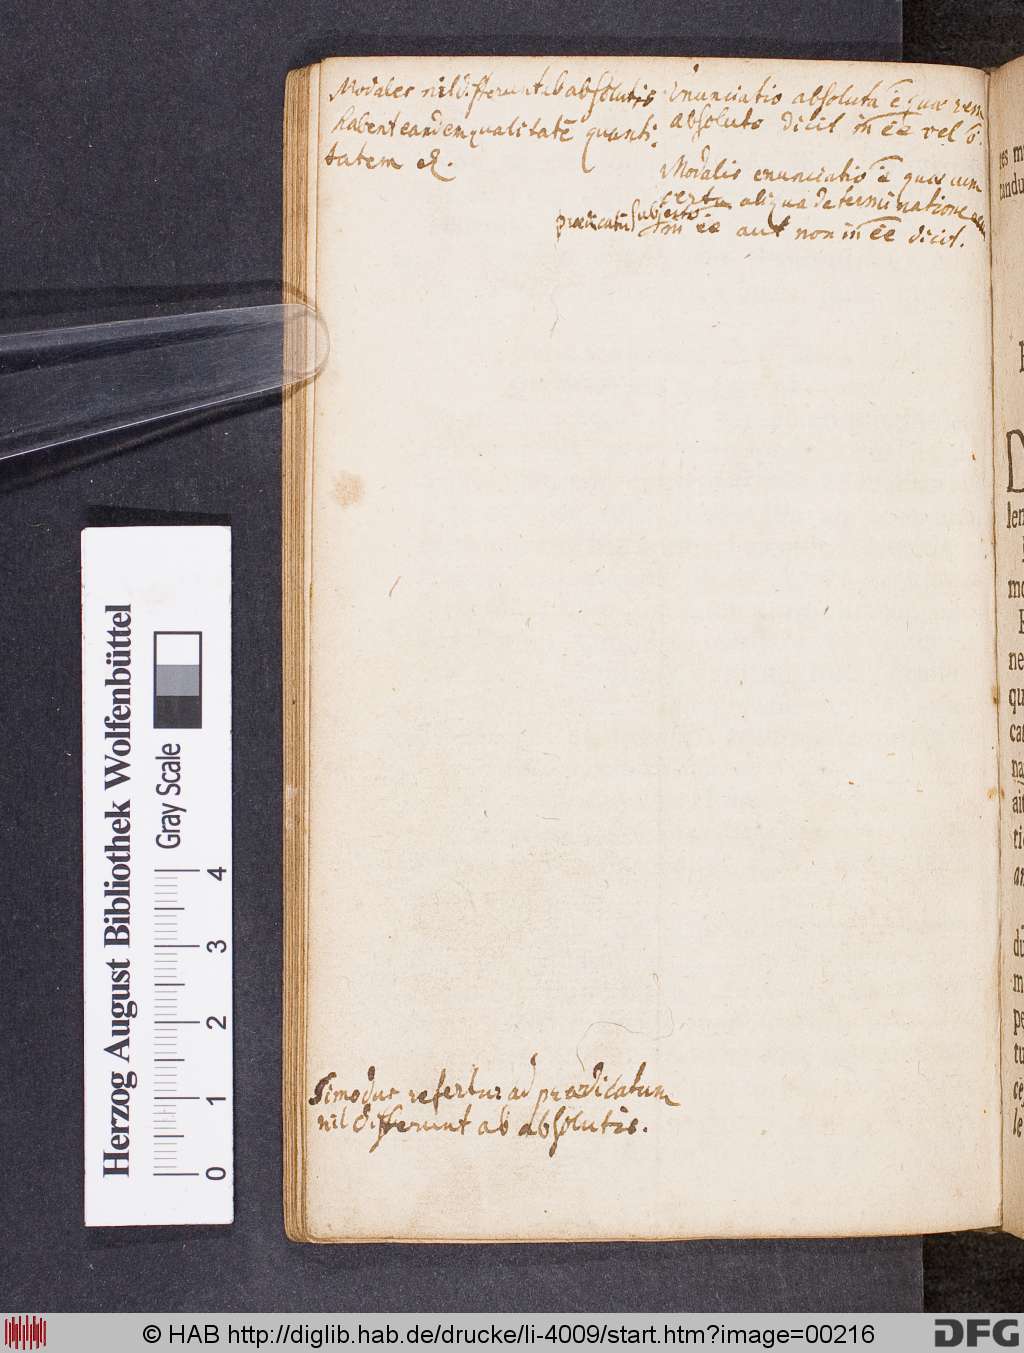 Modales nil differunt ab absolutis
habent eandem qualitatē quanti-
tatem &.
Enunciatio absoluta ē quæ rem
absolute dicit in ēē vel ō.
Modalis enunciatio ē quæ cum
certa aliqua determinatione
prædicatū subjecto
in ēē aut non in ēē dicit.
Si modus refertur ad prædicatum
nil differunt ab absolutis.
Herzog August Bibliothek Wolfenbüttel
Gray Scale
0 1 2 3 4
len
mo
ne
qu
© HAB http://diglib.hab.de/drucke/li-4009/start.htm?image=00216
DFG